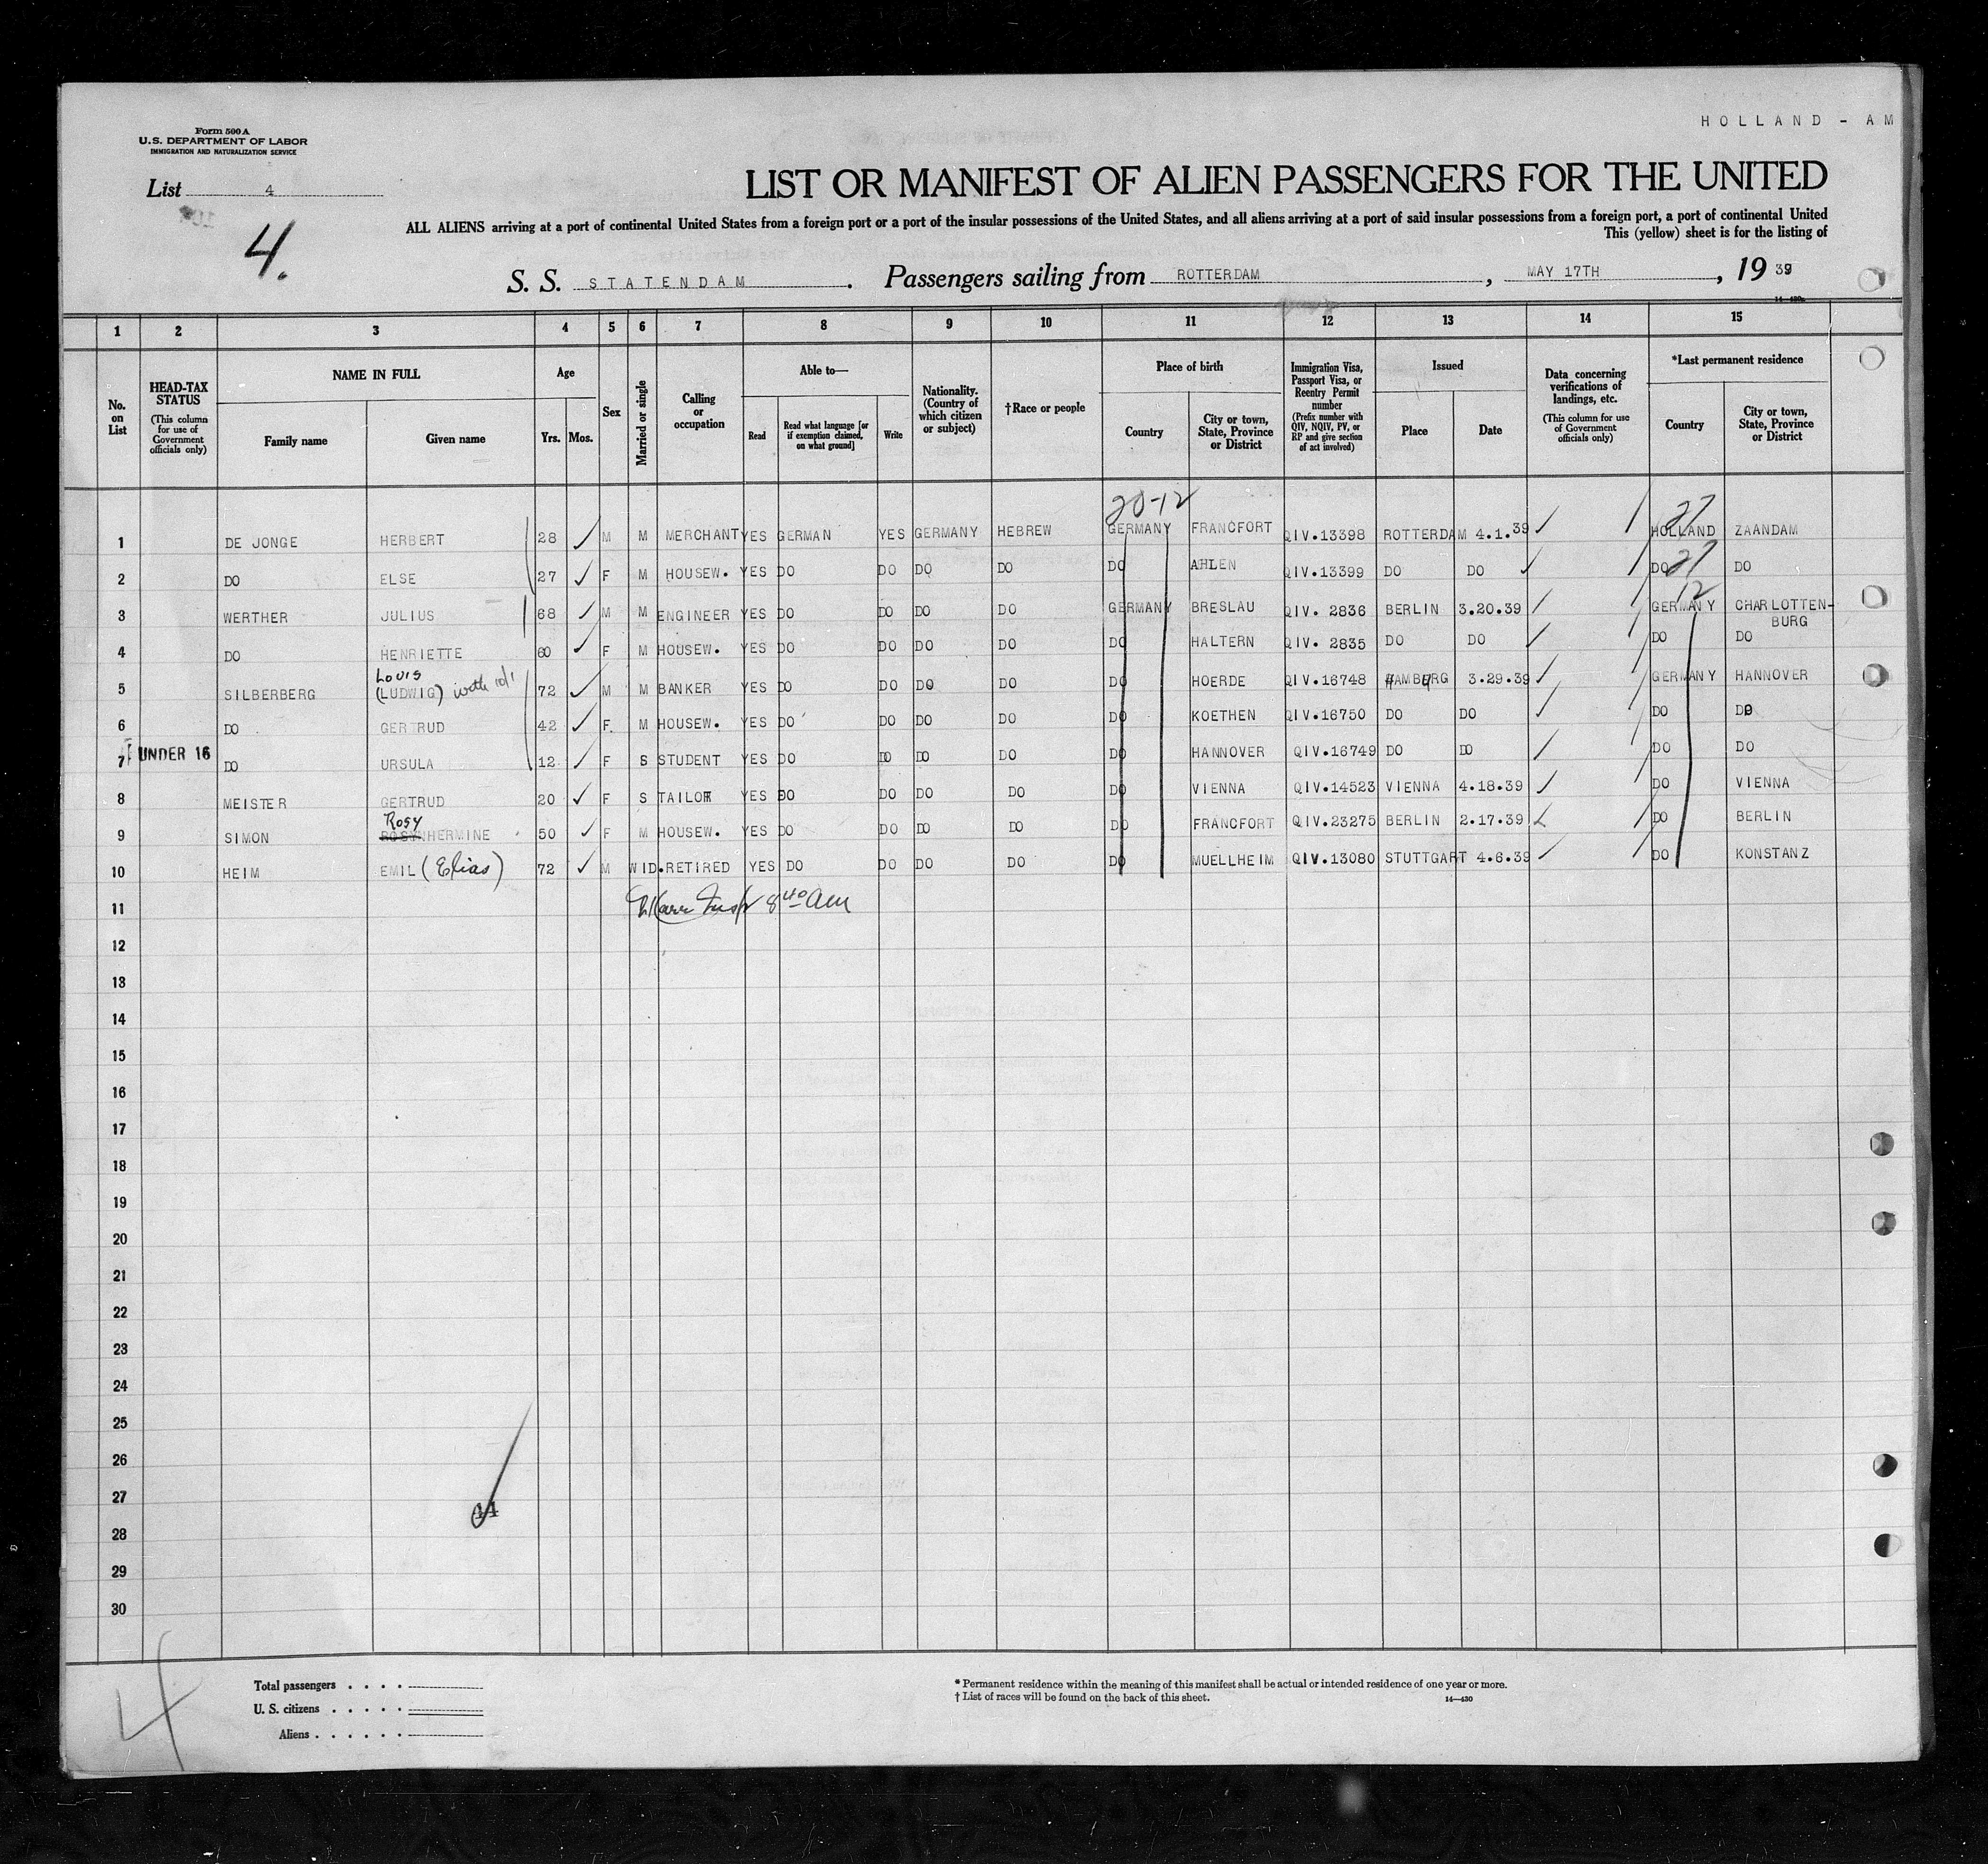 HOLLAND - AM
Form 500 A
U.S. DEPARTMENT OF LABOR
IMMIGRATION AND NATURALIZATION SERVICE
List 4
4.
LIST OR MANIFEST OF ALIEN PASSENGERS FOR THE UNITED
ALL ALIENS arriving at a port of continental United States from a foreign port or a port of the insular possessions of the United States, and all aliens arriving at a port of said insular possessions from a foreign port, a port of continental United
This (yellow) sheet is for the listing of
S. S. STATENDAM . Passengers sailing from ROTTERDAM , MAY 17TH , 19 39
1 2 3 4 5 6 7 8 9 10 11 12 13 14 15
No. on List
HEAD-TAX STATUS (This column for use of Government officials only)
NAME IN FULL
Family name Given name
Age
Yrs. Mos.
Sex
Married or single
Calling or occupation
Able to—
Read Read what language [or if exemption claimed, on what ground] Write
Nationality. (Country of which citizen or subject)
†Race or people
Place of birth
Country City or town, State, Province or District
Immigration Visa, Passport Visa, or Reentry Permit number (Prefix number with QIV, NQIV, PV, or RP and give section of act involved)
Issued
Place Date
Data concerning verifications of landings, etc. (This column for use of Government officials only)
*Last permanent residence
Country City or town, State, Province or District
20-12 27
1 DE JONGE HERBERT 28 M M MERCHANT YES GERMAN YES GERMANY HEBREW GERMANY FRANCFORT QIV.13398 ROTTERDAM 4.1.39 HOLLAND ZAANDAM
27
2 DO ELSE 27 F M HOUSEW. YES DO DO DO DO DO AHLEN QIV.13399 DO DO DO DO
12
3 WERTHER JULIUS 68 M M ENGINEER YES DO DO DO DO GERMANY BRESLAU QIV. 2836 BERLIN 3.20.39 GERMANY CHARLOTTEN-
BURG
4 DO HENRIETTE 60 F M HOUSEW. YES DO DO DO DO DO HALTERN QIV. 2835 DO DO DO DO
Louis
5 SILBERBERG (LUDWIG) 72 M M BANKER YES DO DO DO DO DO HOERDE QIV.16748 HAMBURG 3.29.39 GERMANY HANNOVER
6 DO GERTRUD 42 F. M HOUSEW. YES DO DO DO DO DO KOETHEN QIV.16750 DO DO DO DO
7 UNDER 16 DO URSULA 12 F S STUDENT YES DO DO DO DO DO HANNOVER QIV.16749 DO DO DO DO
8 MEISTER GERTRUD 20 F S TAILOR YES DO DO DO DO DO VIENNA QIV.14523 VIENNA 4.18.39 DO VIENNA
Rosy
9 SIMON HERMINE 50 F M HOUSEW. YES DO DO DO DO DO FRANCFORT QIV.23275 BERLIN 2.17.39 DO BERLIN
10 HEIM EMIL (Elias) 72 M WID. RETIRED YES DO DO DO DO DO MUELLHEIM QIV.13080 STUTTGART 4.6.39 DO KONSTANZ
11 8 40 AM
12
13
14
15
16
17
18
19
20
21
22
23
24
25
26
27
28
29
30
4
Total passengers
U. S. citizens
Aliens
* Permanent residence within the meaning of this manifest shall be actual or intended residence of one year or more.
† List of races will be found on the back of this sheet.
14—430